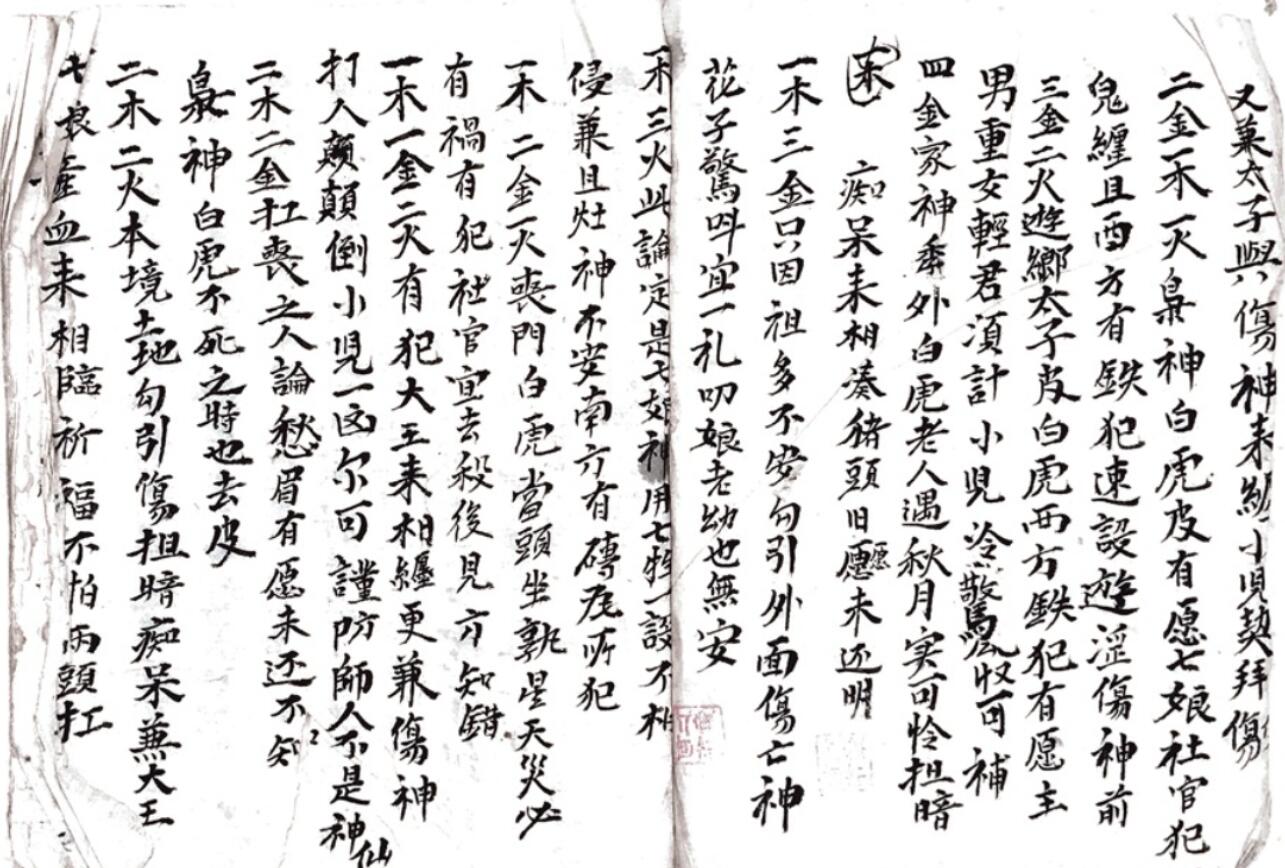 又兼太子與傷神来纏小児契拜傷
二金一木一火梟神白虎皮有愿七娘社官犯
鬼纏且西方有鉄犯速設遊淫傷神前
三金二火遊鄉太子皮白虎西方鉄犯有愿主
男重女輕君須計小児冷驚風収可補
四金家神香外白虎老人遇秋月実可怜担暗
木 痴呆来相凑猪頭旧愿未还明
一木三金只因祖多不安勾引外面傷亡神
花子驚呌宜一礼叩娘老幼也無安
一木三火此論定是七娘神用七牲一設不相
侵兼且灶神不安南方有磚瓦所犯
一木二金一火喪門白虎當頭坐孰星天災必
有禍有犯社官宜去殺後見方知錯
一木一金二火有犯大王来相纏更兼傷神
打入顛顛倒小児一凶尔可謹防師人不是神仙
二木二金扛喪之人論愁眉有愿未还不知
梟神白虎不死之時也去皮
二木二火本境土地勾引傷担暗痴呆兼大王
七娘產血来相臨祈福不怕両頭扛